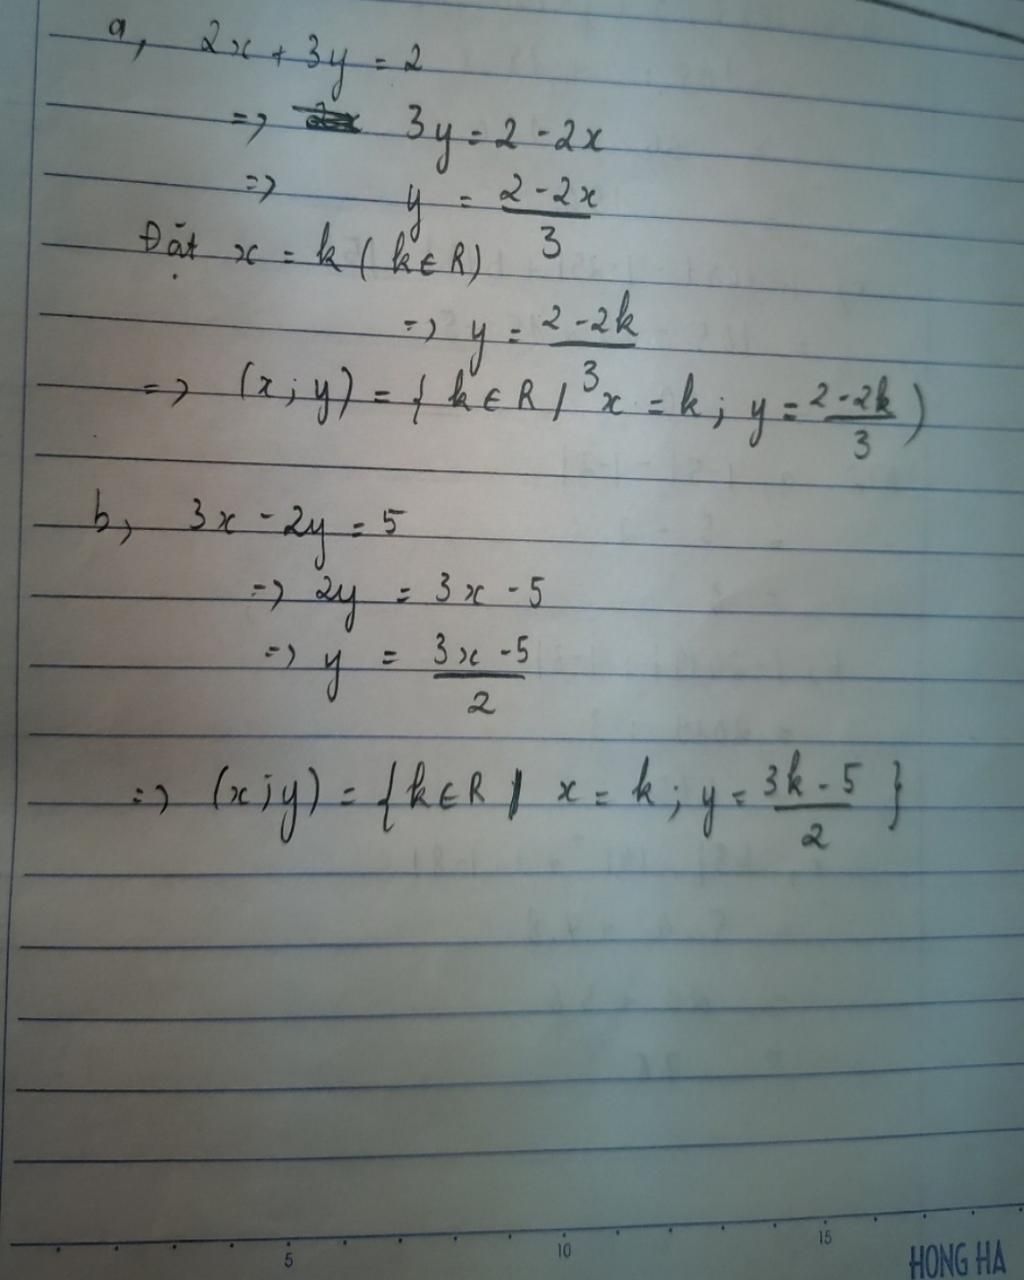 a, 2x + 3y = 2
=> 3y = 2 - 2x
=> y = \frac{2 - 2x}{3}
Đặt x = k ( k ∈ R )
=> y = \frac{2 - 2k}{3}
=> (x; y) = { k ∈ R / x = k; y = \frac{2 - 2k}{3} )
b, 3x - 2y = 5
=> 2y = 3x - 5
=> y = \frac{3x - 5}{2}
=> (x; y) = { k ∈ R | x = k; y = \frac{3k - 5}{2} }
5 10 15
HONG HA